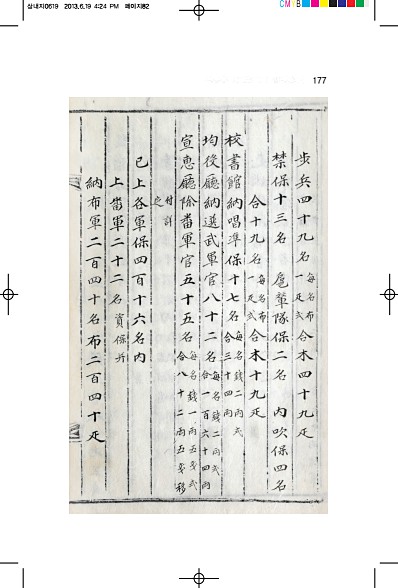 상내지0619 2013.6.19 4:24 PM 페이지82
CMYB
177
步兵四十九名每名布一疋式合木四十九疋
禁保十三名 扈輦隊保二名 內吹保四名
合十九名每名布一疋式合木十九疋
校書館納唱準保十七名每名錢二兩式合三十四兩
均役廳納選武軍官八十二名每名錢二兩式合一百六十四兩
宣惠廳除番軍官五十五名每名錢一兩五戔式合八十二兩五戔移
付計之
已上各軍保四百十六名內
上當軍二十二名資保幷
納布軍二百四十名布二百四十疋